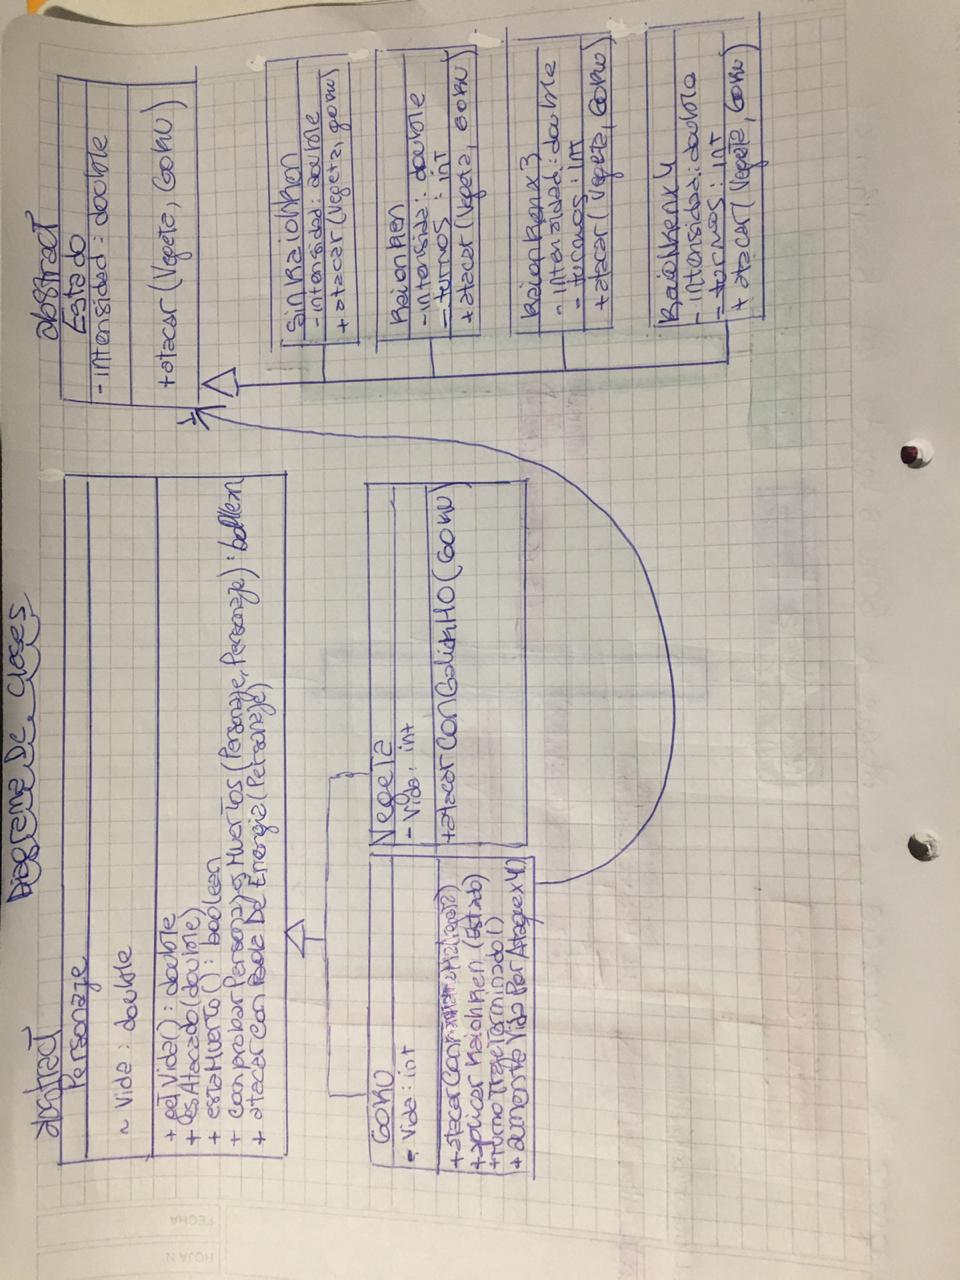 Diagrama De Clases
abstract
Personaje
~ Vida : double
+ getVida() : double
+ esAtacado(double)
+ estaMuerto() : boolean
+ comprobarPersonajesMuertos (Personaje, Personaje) : boolean
+ atacar con Bola De Energia (Personaje)
Goku
- Vida : int
+ atacarCon
+ aplicar Kaioh Ken (Estado)
+ turnoTrajeTerminado()
+ aumenta Vida Por Ataque x 4()
Vegeta
- Vida : int
+ atacarConGalickHO (Goku)
abstract
Estado
- intensidad : double
+ atacar (Vegeta, Goku)
SinKaiohKen
- intensidad : double
+ atacar (Vegeta, goku)
KaiohKen
- intensidad : double
- turnos : int
+ atacar (Vegeta, Goku)
KaiohKenx3
- intensidad : double
- turnos : int
+ atacar (Vegeta, Goku)
KaiohKenx4
- intensidad : double
- turnos : int
+ atacar (Vegeta, Goku)
FECHA
HOJA Nº